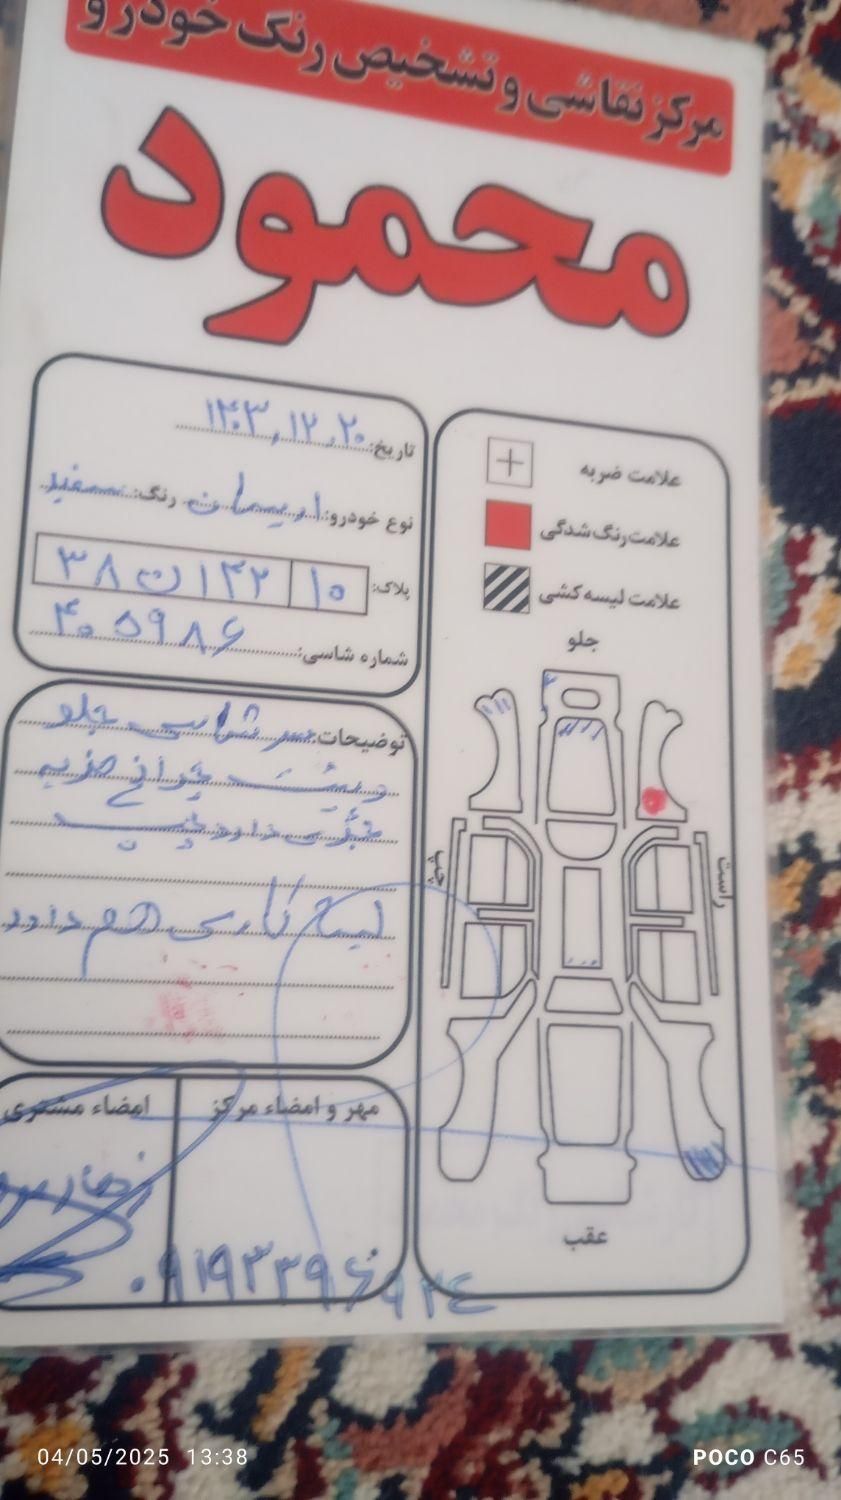 مرکز نقاشی و تشخیص رنگ خودرو
محمود
علامت ضربه
علامت رنگ شدگی
علامت لیسه کشی
جلو
راست
چپ
عقب
تاریخ: ۱۴۰۳,۱۲,۲۰
نوع خودرو: رنگ: سفید
پلاک: ۱۰ ۱۴۲ ن ۳۸
شماره شاسی: ۴۰۵۹۸۶
توضیحات: سر شاسی جلو
پشت چراغ ضربه
دارد چپ
لیسه کاری هم دارد
مهر و امضاء مرکز
امضاء مشتری
۰۹۱۹۳۳۹۶۹۲٤
04/05/2025 13:38
POCO C65